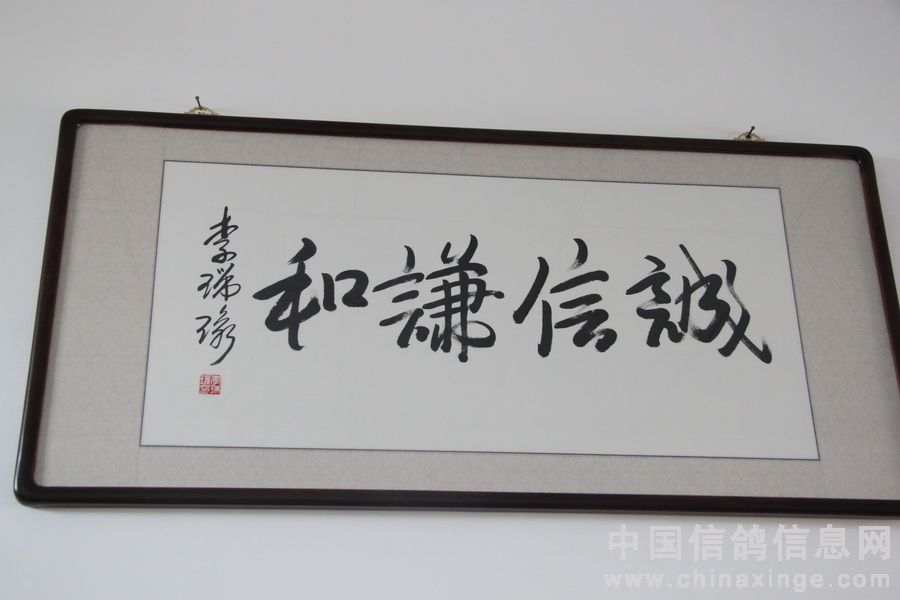 誠信謙和
李瑞環
中国信鸽信息网
www.chinaxinge.com